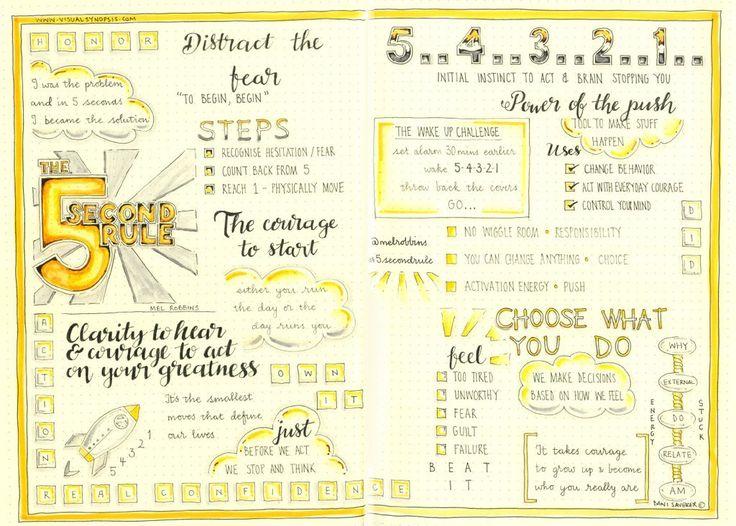 WWW.VISUALSYNOPSIS.COM
HONOR
Distract the
fear
"TO BEGIN, BEGIN"
I was the problem
and in 5 seconds
I became the solution
STEPS
RECOGNISE HESITATION / FEAR
COUNT BACK FROM 5
REACH 1 - PHYSICALLY MOVE
THE
5 SECOND
RULE
MEL ROBBINS
The courage
to start
either you run
the day or the
day runs you
ACTION
Clarity to hear
& courage to act
on your greatness
OWN
IT
It's the smallest
moves that define
our lives
5 4 3 2 1
just
BEFORE WE ACT
WE STOP AND THINK
REAL CONFIDENCE
5..4..3..2..1..
INITIAL INSTINCT TO ACT & BRAIN STOPPING YOU
Power of the push
TOOL TO MAKE STUFF
HAPPEN
THE WAKE UP CHALLENGE
set alarm 30mins earlier
wake 5-4-3-2-1
throw back the covers
GO...
Uses
CHANGE BEHAVIOR
ACT WITH EVERYDAY COURAGE
CONTROL YOUR MIND
DID
@melrobbins
#5secondrule
NO WIGGLE ROOM • RESPONSIBILITY
YOU CAN CHANGE ANYTHING • CHOICE
ACTIVATION ENERGY • PUSH
CHOOSE WHAT
YOU DO
feel
TOO TIRED
UNWORTHY
FEAR
GUILT
FAILURE
BEAT
IT
WE MAKE DECISIONS
BASED ON HOW WE FEEL
It takes courage
to grow up & become
who you really are
WHY
EXTERNAL
DO
RELATE
AM
ENERGY
STUCK
DANI SAVEKER ©